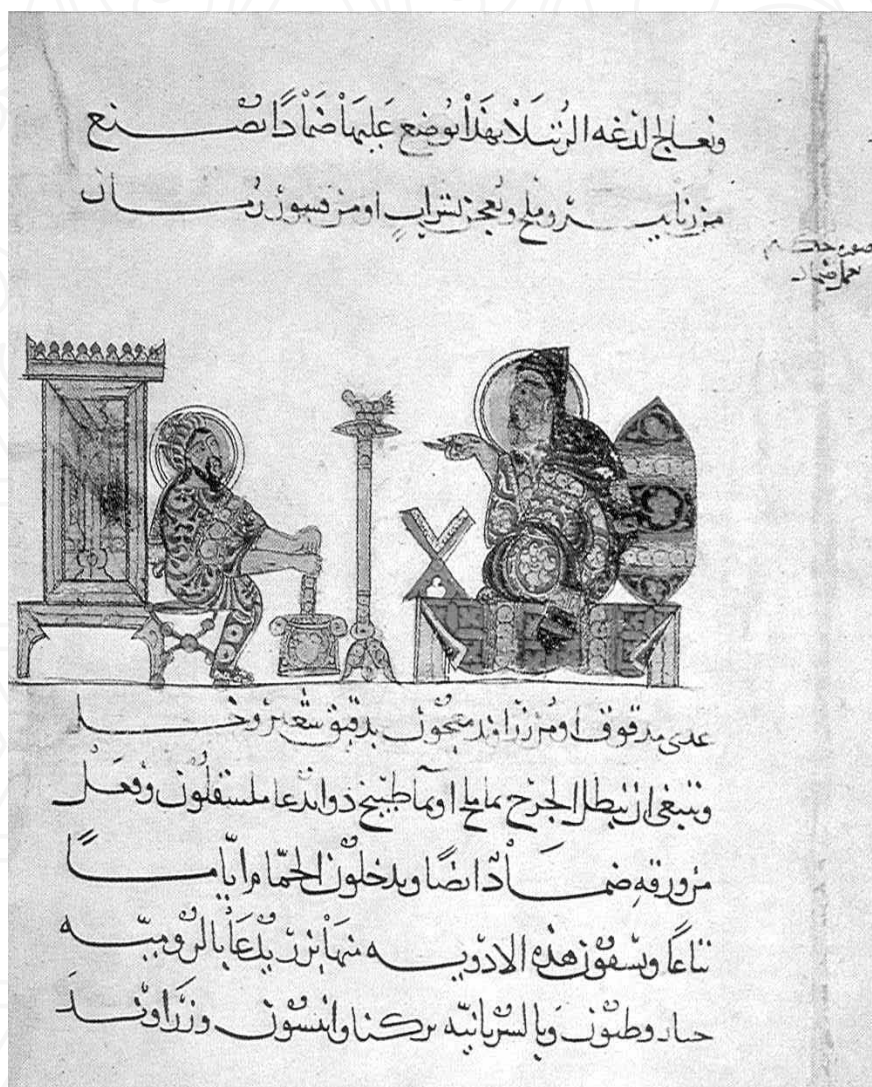 وتعالج لدغه الرتيلا بهذا يوضع عليها ضمادا يصنع
من رتاينر وملح ويعجن بشراب او من قسور رمان
صوره حكيم
يعمل ضماد
عدى مدقوق او من زراوند معجون بدقيق شعير وخل
وينبغى ان ينطل الجرح بما ملح او بما طبيخ يدعا ملسقلون ويعمل
من ورقه ضمادا ايضا ويدخلون الحمام اياما
تباعا ويسقون هذه الادويه منها بزر يدعا بالروميه
وبالسريانيه بركنا وانيسون وزراوند